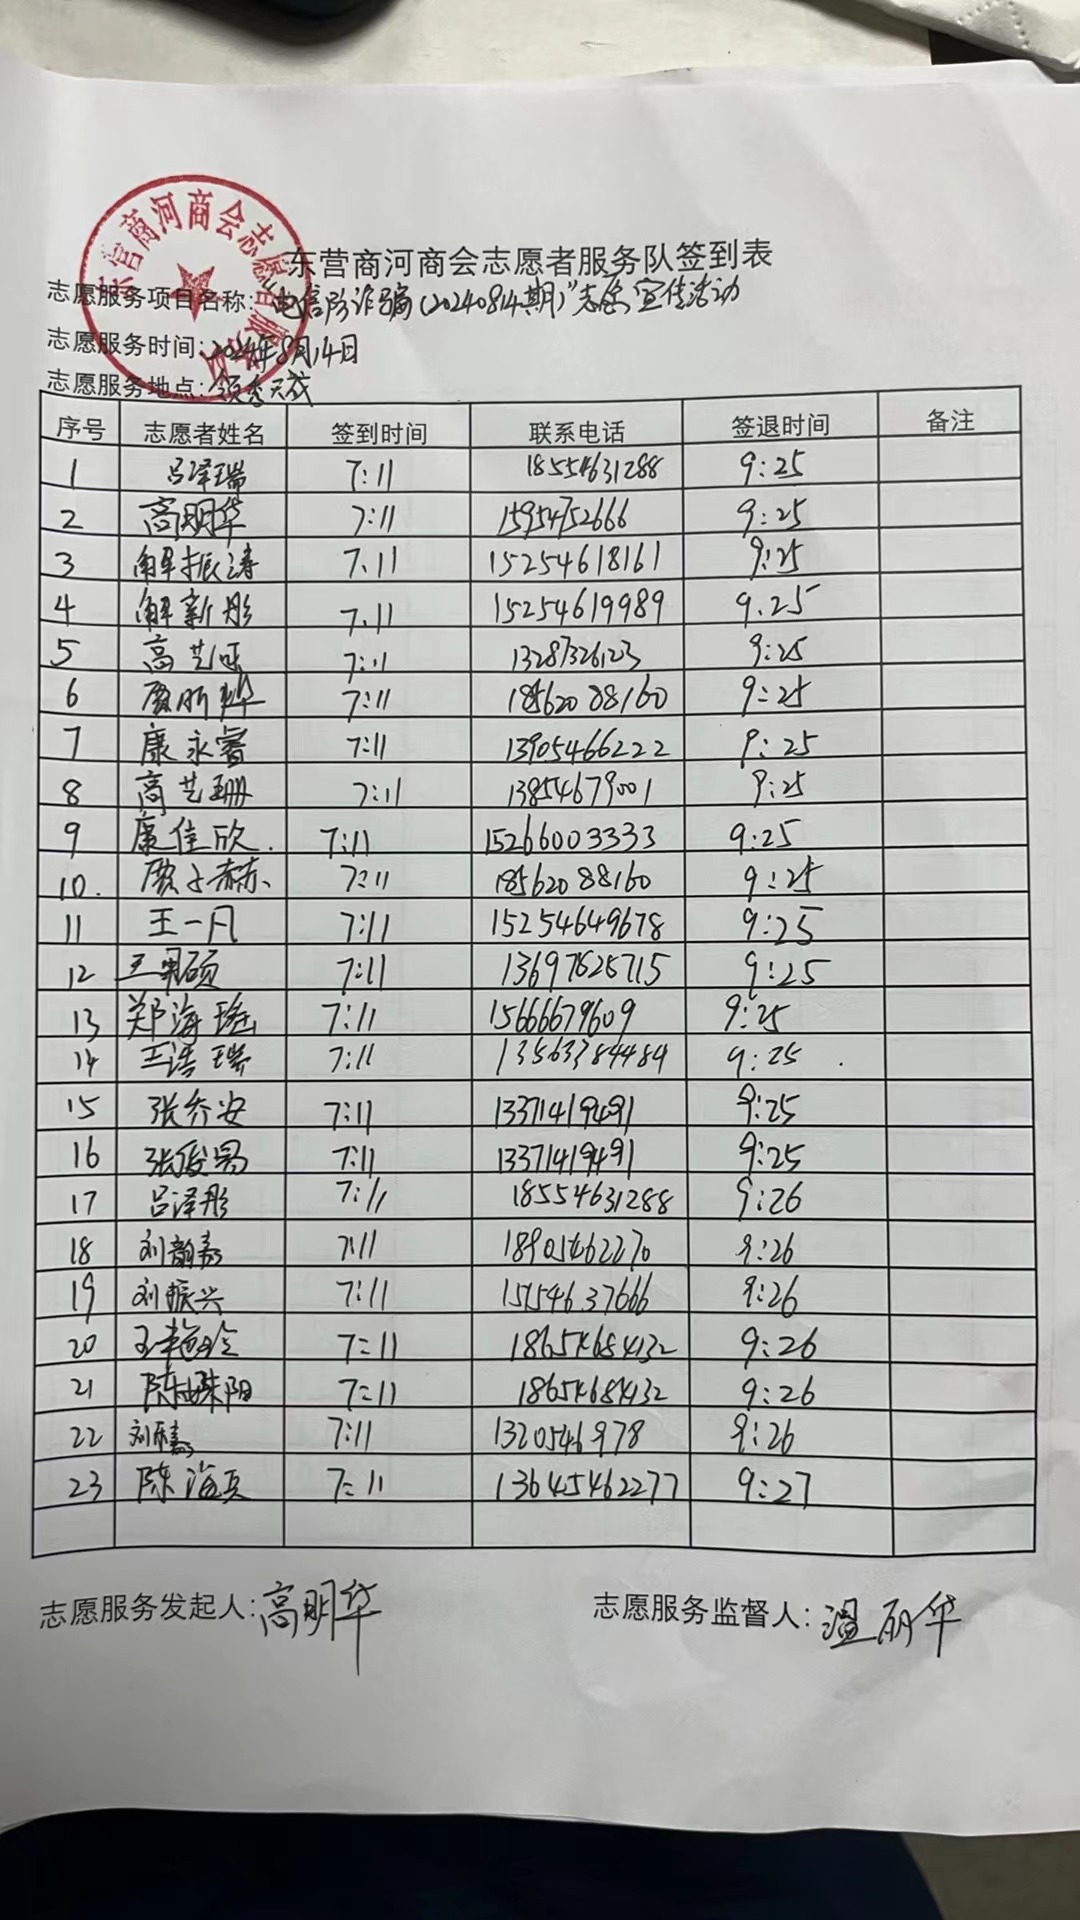 东营商河商会志愿者服务队
东营商河商会志愿者服务队签到表
志愿服务项目名称:“电信防诈骗(20240814期)”志愿宣传活动
志愿服务时间:2024年8月14日
志愿服务地点:领秀天成
序号 志愿者姓名 签到时间 联系电话 签退时间 备注
1 吕泽瑞 7:11 18554631288 9:25
2 高明华 7:11 15954752666 9:25
3 解振涛 7:11 15254618161 9:25
4 解新彤 7.11 15254619989 9.25
5 高艺 7:11 13287326123 9:25
6 7:11 18562088160 9:25
7 康永睿 7:11 13905466222 9:25
8 高艺珊 7:11 13854679001 9:25
9 康佳欣. 7:11 15266003333 9:25
10. 7:11 18562088160 9:25
11 王一凡 7:11 15254649678 9:25
12 王硕 7:11 13697828715 9:25
13 郑海瑶 7:11 15666679609 9:25
14 王浩瑞 7:11 13563384484 9:25
15 张乔安 7:11 13371419491 9:25
16 张俊 7:11 13371419491 9:25
17 吕泽彤 7:11 18554631288 9:26
18 刘韵嘉 7:11 18905462270 9:26
19 刘振兴 7:11 15154637666 9:26
20 王艳玲 7:11 18654684132 9:26
21 陈姝阳 7:11 18654684132 9:26
22 刘 7:11 1320546978 9:26
23 陈海兵 7:11 13645462277 9:27
志愿服务发起人:高明华 志愿服务监督人:温丽华